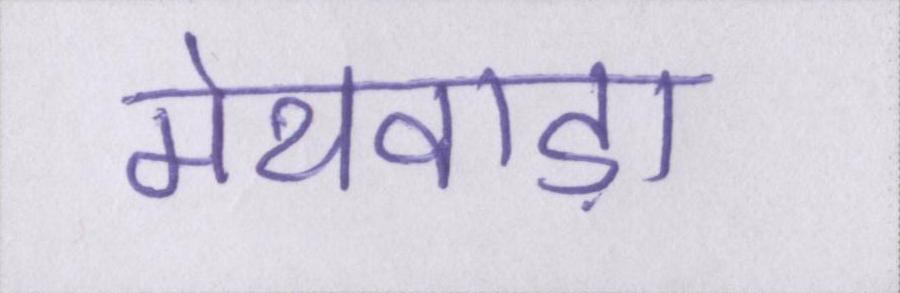 मेथवाड़ा